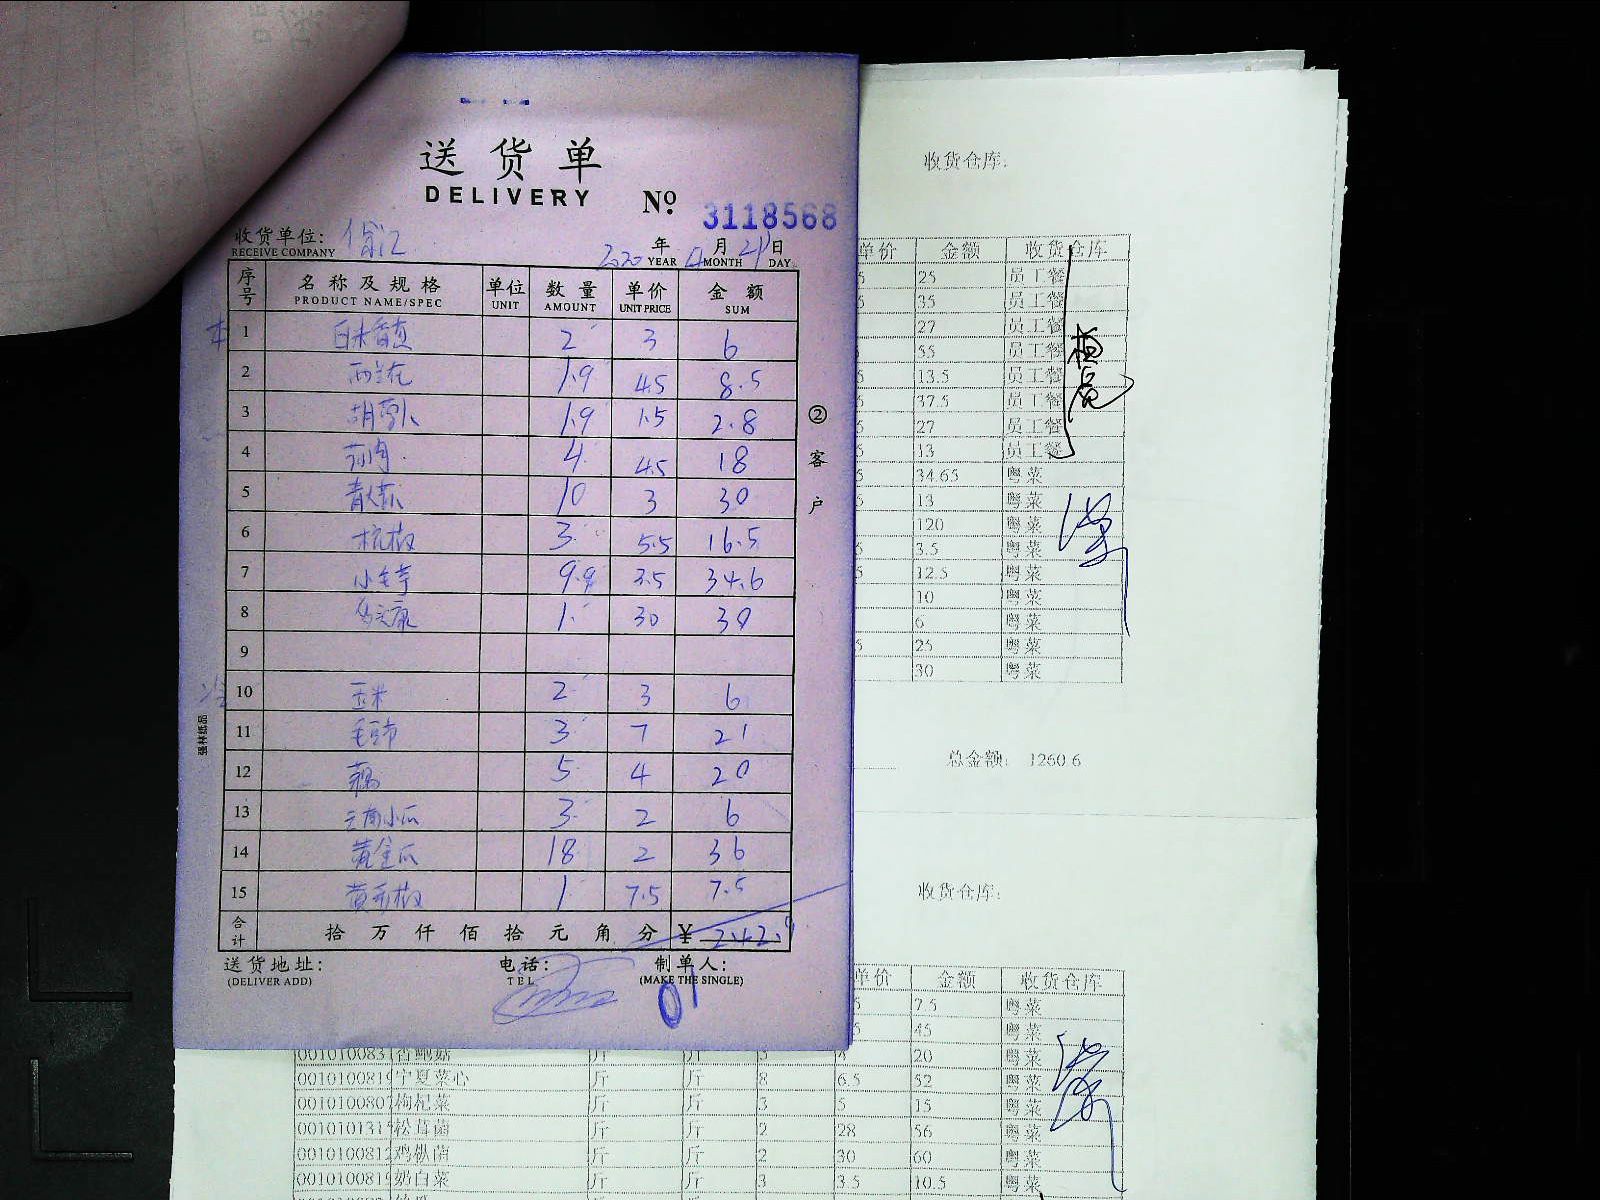 送货单
DELIVERY
№ 3118568
收货单位:
RECEIVE COMPANY
2020 年 月 21 日
YEAR MONTH DAY
序号 名称及规格 单位 数量 单价 金额
PRODUCT NAME/SPEC UNIT AMOUNT UNIT PRICE SUM
1 2 3 6
2 西兰花 1.9 4.5 8.5
3 胡萝卜 1.9 1.5 2.8
4 4 4.5 18
5 10 3 30
6 杭椒 3 5.5 16.5
7 小毛芋 9.9 3.5 34.6
8 1 30 30
9
10 玉米 2 3 6
11 毛豆 3 7 21
12 藕 5 4 20
13 云南小瓜 3 2 6
14 黄金瓜 18 2 36
15 黄彩椒 1 7.5 7.5
合计 拾 万 仟 佰 拾 元 角 分 ¥ 242.9
送货地址: 电话: 制单人:
(DELIVER ADD) TEL (MAKE THE SINGLE)
01
②客户
强林纸品
收货仓库:
单价 金额 收货仓库
25 员工餐
35 员工餐
27 员工餐
55 员工餐
13.5 员工餐
37.5 员工餐
27 员工餐
13 员工餐
34.65 粤菜
13 粤菜
120 粤菜
3.5 粤菜
12.5 粤菜
10 粤菜
6 粤菜
25 粤菜
30 粤菜
总金额: 1260.6
收货仓库:
单价 金额 收货仓库
7.5 粤菜
45 粤菜
001010083 杏鲍菇 斤 斤 5 4 20 粤菜
001010081 宁夏菜心 斤 斤 8 6.5 52 粤菜
001010080 枸杞菜 斤 斤 3 5 15 粤菜
001010131 松茸菌 斤 斤 2 28 56 粤菜
001010081 鸡枞菌 斤 斤 2 30 60 粤菜
001010081 奶白菜 斤 斤 3 3.5 10.5 粤菜